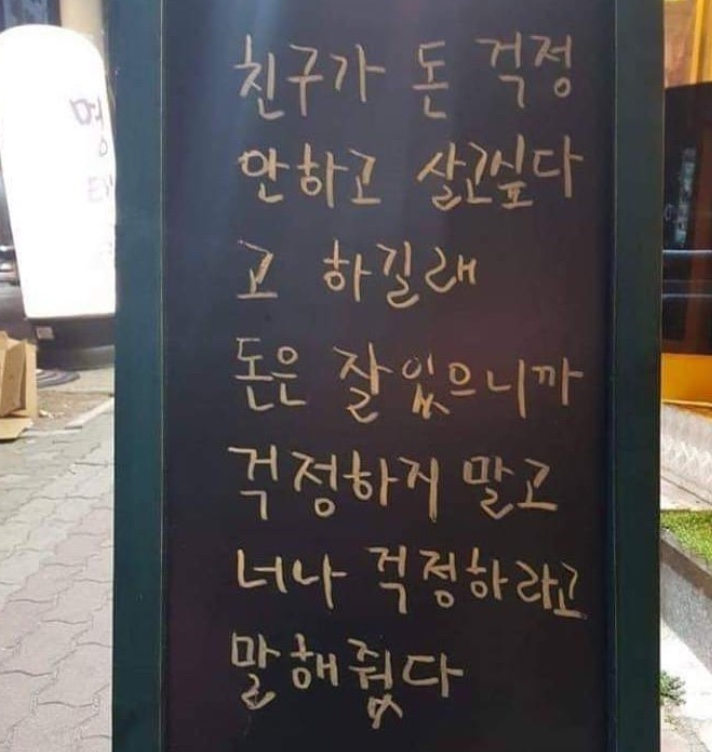 친구가 돈 걱정
안하고 살고싶다
고 하길래
돈은 잘있으니까
걱정하지 말고
너나 걱정하라고
말해줬다